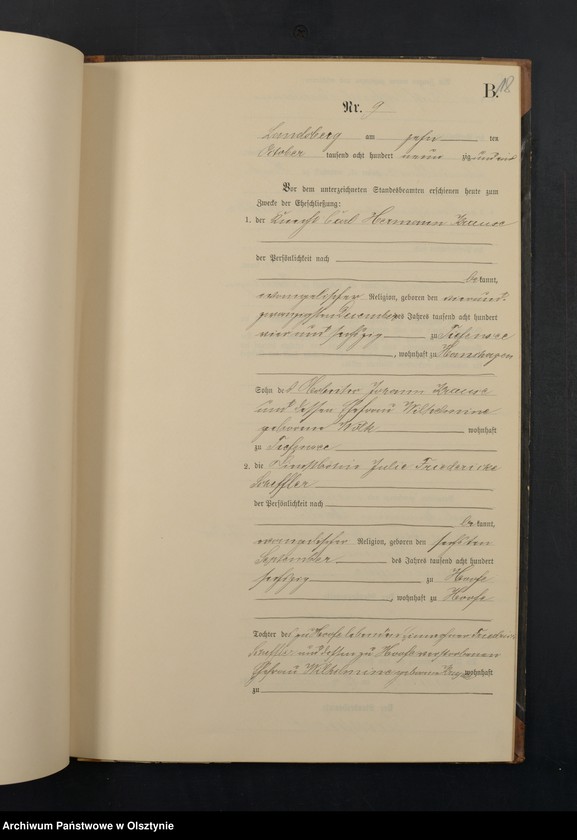 B. 18.
Nr. 9
Landsberg am zehn ten
October tausend acht hundert neun zig und ein
Vor dem unterzeichneten Standesbeamten erschienen heute zum
Zwecke der Eheschließung:
1. der Knecht Carl Hermann Krause
der Persönlichkeit nach
be kannt,
evangelischer Religion, geboren den vierund-
zwanzigsten Dezember des Jahres tausend acht hundert
vier und sechszig zu Tiefensee
, wohnhaft zu Hanshagen
Sohn des Arbeiter Johann Krause
und dessen Ehefrau Wilhelmine
geborene Wölk wohnhaft
zu Tiefensee
2. die Dienstbotin Julie Friedericke
Scheffler
der Persönlichkeit nach
be kannt,
evangelischer Religion, geboren den sechsten
September des Jahres tausend acht hundert
sechszig zu Hoofe
, wohnhaft zu Hoofe
Tochter des zu Hoofe lebenden
und dessen zu Hoofe verstorbenen
Ehefrau Wilhelmine geborene wohnhaft
zu
Archiwum Państwowe w Olsztynie